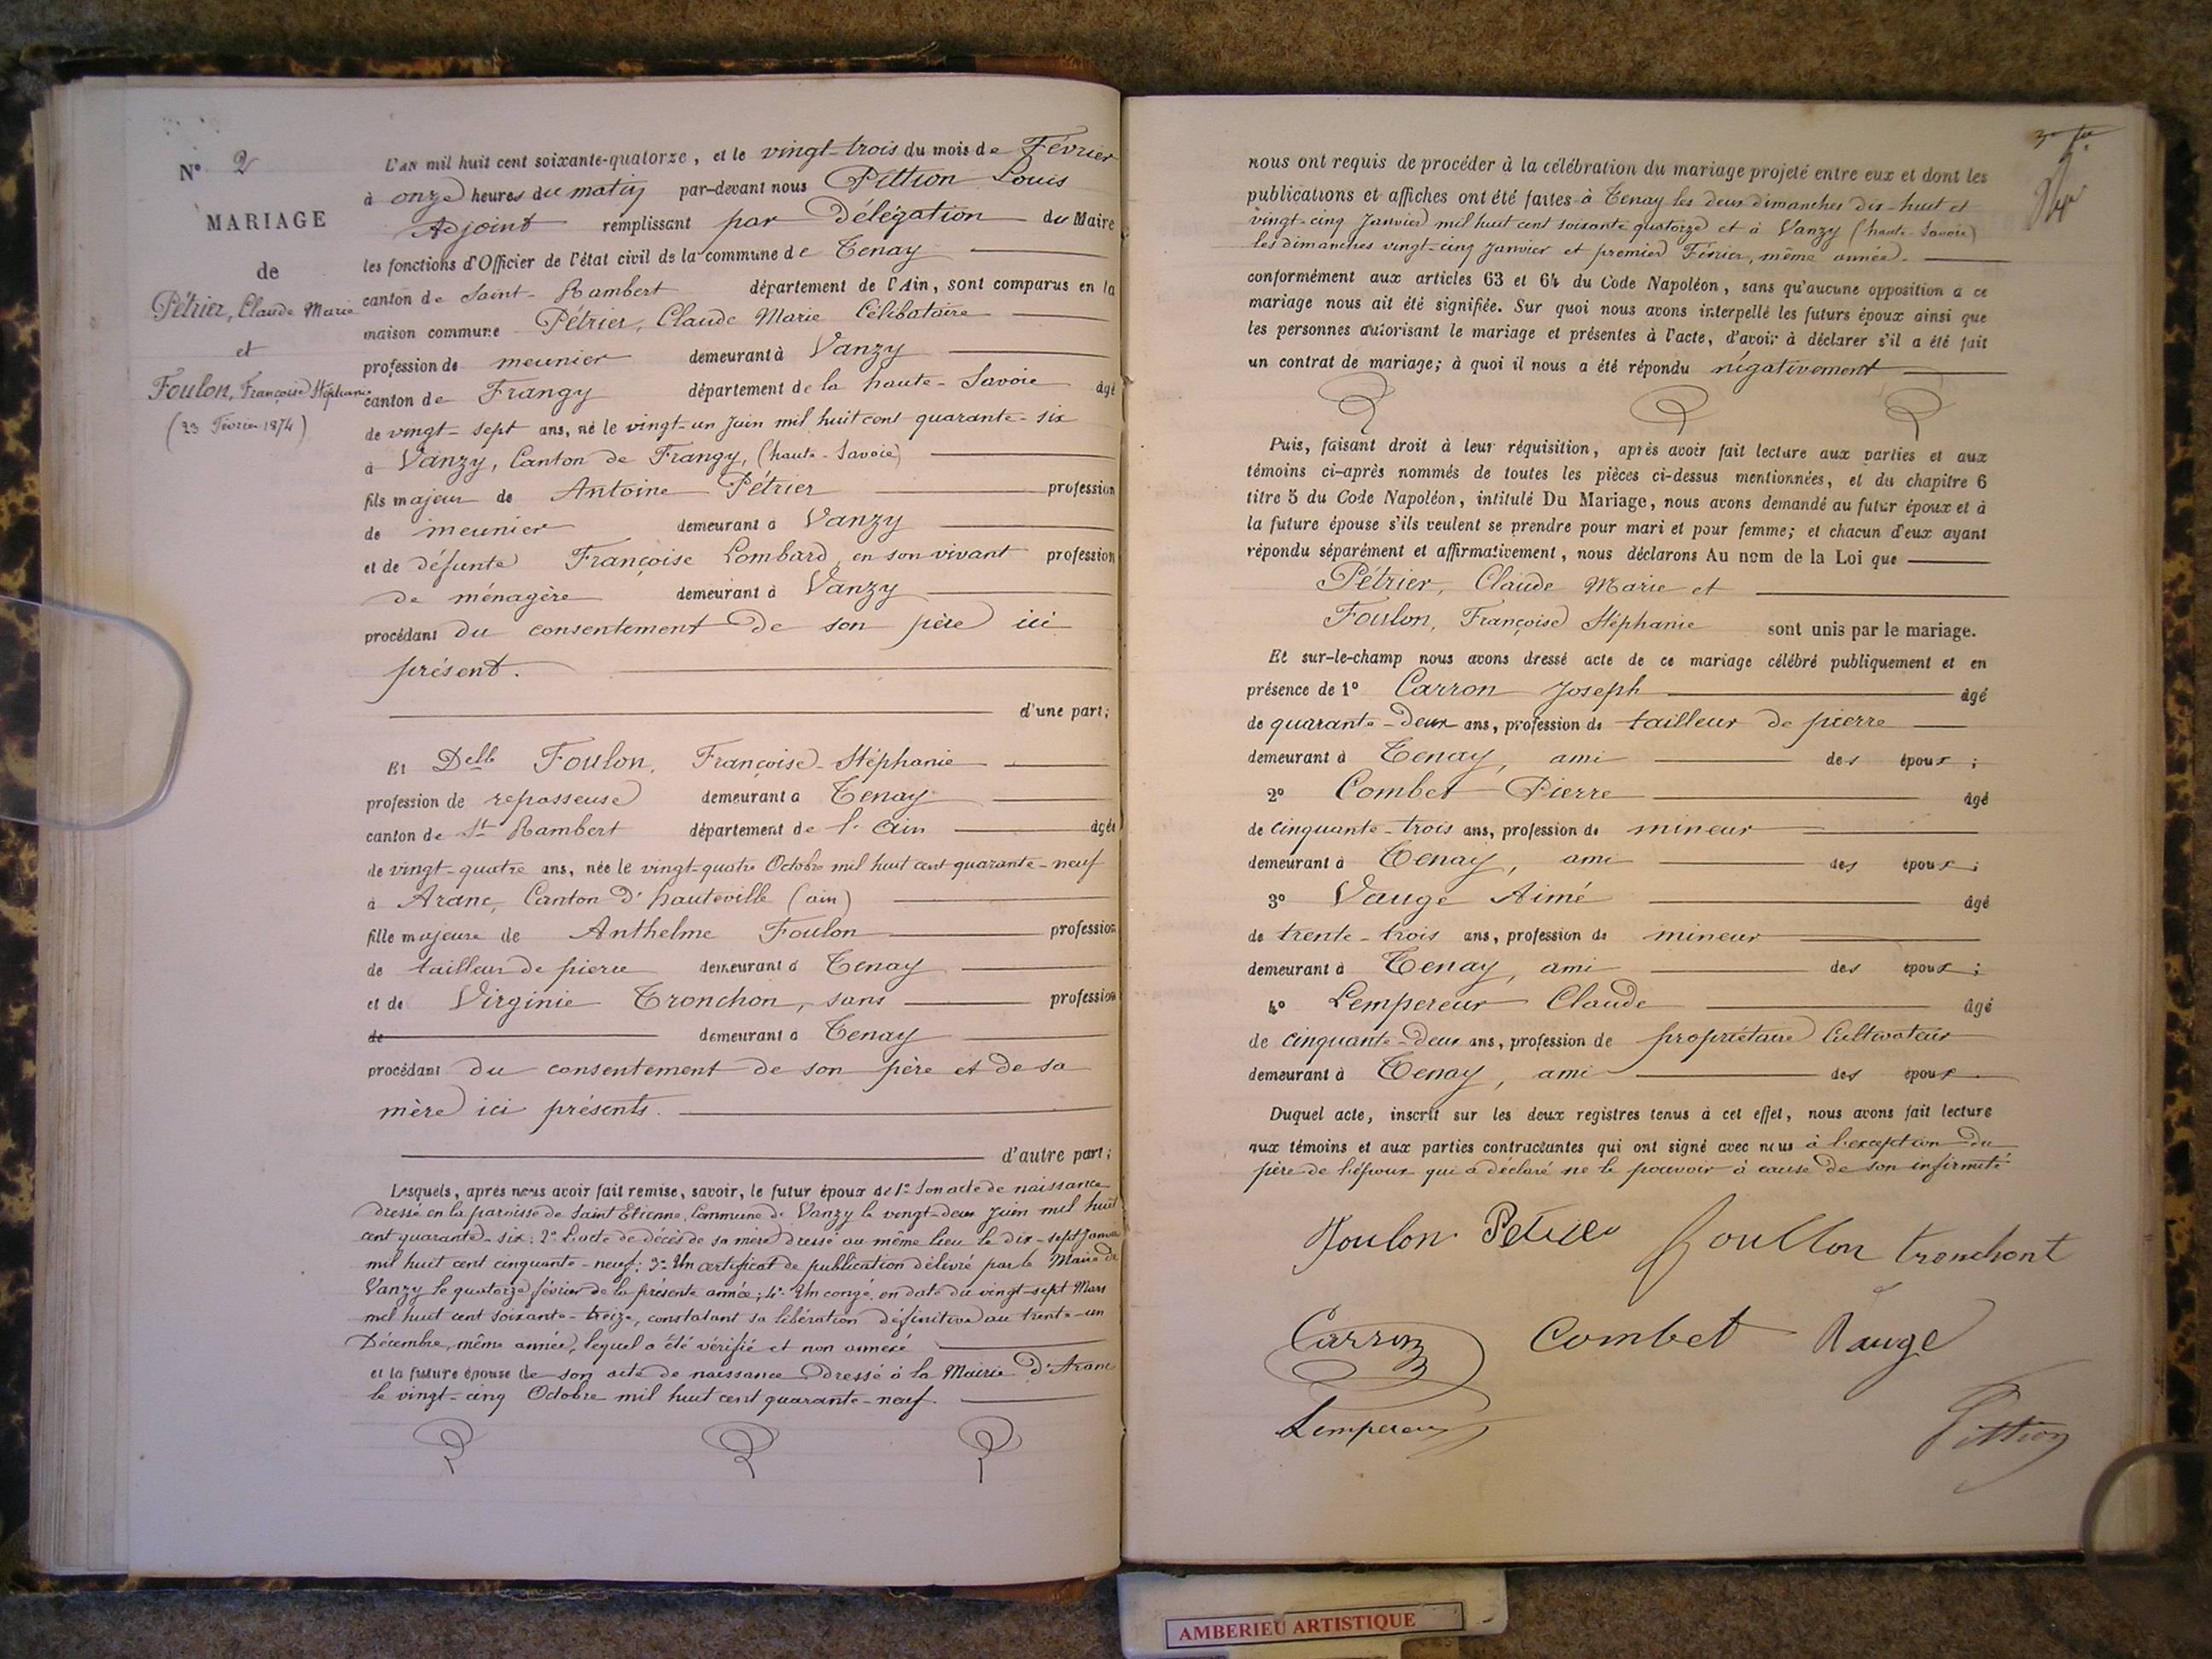 N° 2
MARIAGE
de
Pétrier, Claude Marie
et
Foulon, Françoise Stéphanie
(23 Février 1874)
L'AN mil huit cent soixante-quatorze, et le vingt-trois du mois de Février
à onze heures du matin par-devant nous Pittion Louis
Adjoint remplissant par Délégation du Maire
les fonctions d'Officier de l'état civil de la commune de Tenay
canton de Saint-Rambert département de l'Ain, sont comparus en la
maison commune Pétrier, Claude Marie Célibataire
profession de meunier demeurant à Vanzy
canton de Frangy département de la haute-Savoie âgé
de vingt-sept ans, né le vingt-un Juin mil huit cent quarante-six
à Vanzy, Canton de Frangy, (haute-Savoie)
fils majeur de Antoine Pétrier profession
de meunier demeurant à Vanzy
et de défunte Françoise Lombard en son vivant profession
de ménagère demeurant à Vanzy
procédant du consentement de son père ici
présent.
d'une part;
Et Delle Foulon, Françoise-Stéphanie
profession de repasseuse demeurant à Tenay
canton de St Rambert département de l'Ain âgée
de vingt-quatre ans, née le vingt-quatre Octobre mil huit cent quarante-neuf
à Aranc, Canton d'hauteville (ain)
fille majeure de Anthelme Foulon profession
de tailleur de pierre demeurant à Tenay
et de Virginie Tronchon, sans profession
de demeurant à Tenay
procédant du consentement de son père et de sa
mère ici présents.
d'autre part;
Lesquels, après nous avoir fait remise, savoir, le futur époux de 1° Son acte de naissance
dressé en la paroisse de Saint Etienne, Commune de Vanzy le vingt-deux Juin mil huit
cent quarante-six: 2° L'acte de décès de sa mère dressé au même lieu le dix-sept Janvier
mil huit cent cinquante-neuf: 3° Un certificat de publication délivré par le Maire de
Vanzy le quatorze février de la présente année; 4° Un congé en date du vingt-sept Mars
mil huit cent soixante-treize, constatant sa libération définitive au trente-un
Décembre, même année, lequel a été vérifié et non annexé
et la future épouse de son acte de naissance dressé à la Mairie d'Aranc
le vingt-cinq Octobre mil huit cent quarante-neuf.
nous ont requis de procéder à la célébration du mariage projeté entre eux et dont les
publications et affiches ont été faites à Tenay les deux dimanches dix-huit et
vingt-cinq Janvier mil huit cent soixante quatorze et à Vanzy (haute-Savoie)
les dimanches vingt-cinq Janvier et premier Février, même année.
conformément aux articles 63 et 64 du Code Napoléon, sans qu'aucune opposition à ce
mariage nous ait été signifiée. Sur quoi nous avons interpellé les futurs époux ainsi que
les personnes autorisant le mariage et présentes à l'acte, d'avoir à déclarer s'il a été fait
un contrat de mariage; à quoi il nous a été répondu négativement
Puis, faisant droit à leur réquisition, après avoir fait lecture aux parties et aux
témoins ci-après nommés de toutes les pièces ci-dessus mentionnées, et du chapitre 6
titre 5 du Code Napoléon, intitulé Du Mariage, nous avons demandé au futur époux et à
la future épouse s'ils veulent se prendre pour mari et pour femme; et chacun d'eux ayant
répondu séparément et affirmativement, nous déclarons Au nom de la Loi que
Pétrier, Claude Marie et
Foulon, Françoise Stéphanie sont unis par le mariage.
Et sur-le-champ nous avons dressé acte de ce mariage célébré publiquement et en
présence de 1° Carron Joseph âgé
de quarante-deux ans, profession de tailleur de pierre
demeurant à Tenay, ami des époux;
2° Combet Pierre âgé
de cinquante-trois ans, profession de mineur
demeurant à Tenay, ami des époux;
3° Vauge Aimé âgé
de trente-trois ans, profession de mineur
demeurant à Tenay, ami des époux;
4° Lempereur Claude âgé
de cinquante-deux ans, profession de propriétaire Cultivateur
demeurant à Tenay, ami des époux.
Duquel acte, inscrit sur les deux registres tenus à cet effet, nous avons fait lecture
aux témoins et aux parties contractantes qui ont signé avec nous à l'exception du
père de l'époux qui a déclaré ne le pouvoir à cause de son infirmité
Foulon Foullon tronchont
Carron Combet Vauge
Lempereur Pittion
AMBERIEU ARTISTIQUE